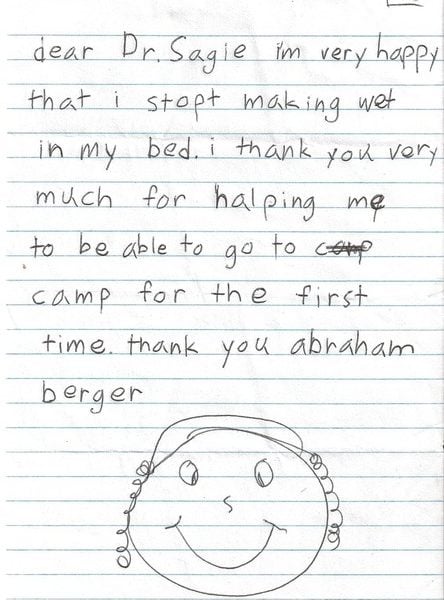 dear Dr. Sagie im very happy
that i stopt making wet
in my bed. i thank you very
much for halping me
to be able to go to camp
camp for the first
time. thank you abraham
berger